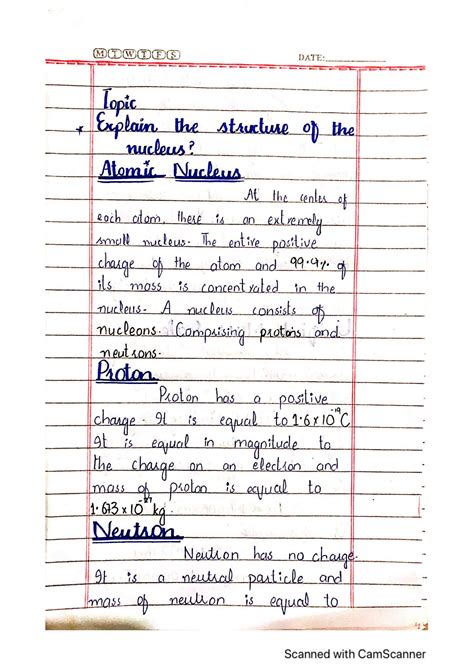 M T W T F S
DATE:
Topic
* Explain the structure of the
nucleus?
Atomic Nucleus
At the center of
each atom, there is an extremely
small nucleus. The entire positive
charge of the atom and 99.9% of
its mass is concentrated in the
nucleus. A nucleus consists of
nucleons. Comprising protons and
neutrons.
Proton
Proton has a positive
charge. It is equal to 1.6 x 10⁻¹⁹C
It is equal in magnitude to
the charge on an electron and
mass of proton is equal to
1.673 x 10⁻²⁷ kg.
Neutron
Neutron has no charge.
It is a neutral particle and
mass of neutron is equal to
Scanned with CamScanner